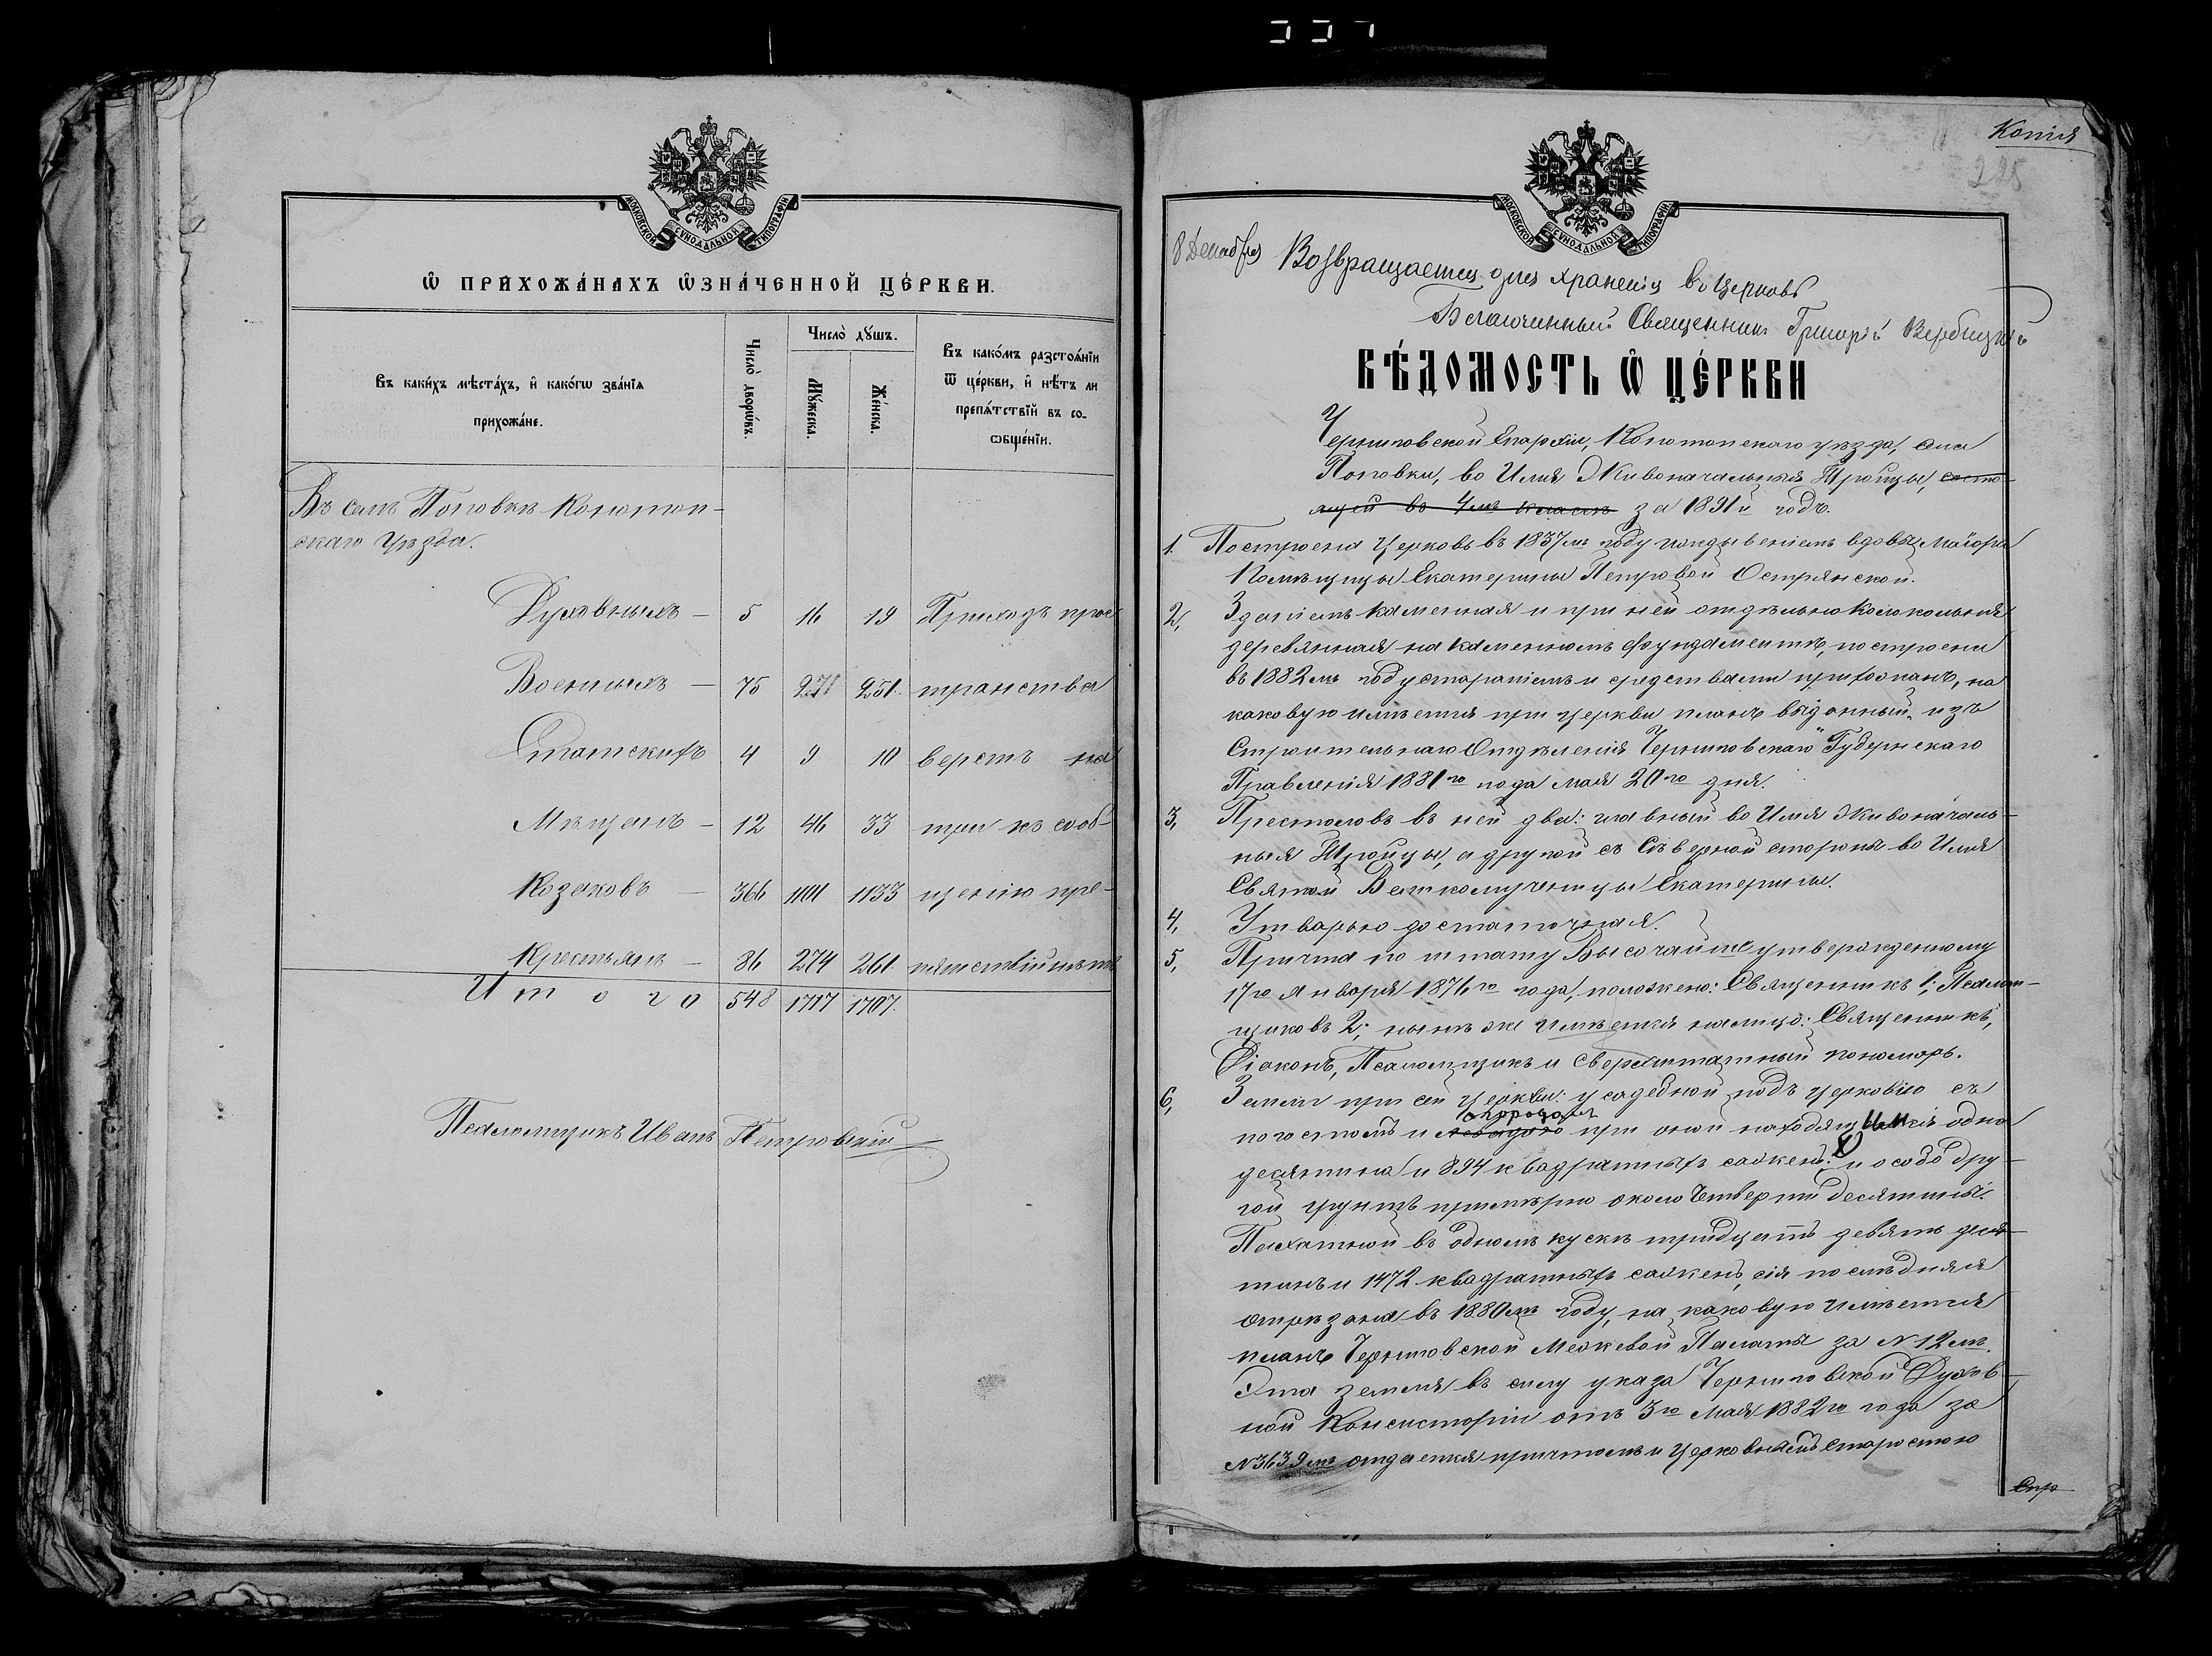 МОСКОВСКОЙ СѴНОДАЛЬНОЙ ТИПОГРАФІИ
Ѡ ПРИХОЖА́НАХЪ Ѡ҆ЗНА́ЧЕННОЙ ЦЕ́РКВИ.
Въ каки́хъ мѣста́хъ, и҆ како́гѡ зва́нїѧ
прихожа́не.
Число̀ дворѡ́въ.
Число̀ дꙋ́шъ.
Мꙋ́жеска.
Же́нска.
Въ како́мъ разстоѧ́нїи
ѿ це́ркви, и҆ нѣ́тъ ли
препѧ́тствїй въ со-
ѻбще́нїи.
Въ селѣ Поповкѣ Конотоп-
скаго уѣзда.
Духовныхъ – 5 16 19 Приходъ прос
Военныхъ – 75 271 251. транства
Статскихъ 4 9 10 верстъ на
Мѣщанъ – 12 46 33 три къ сооб-
Козаковъ – 366 1101 1133 щенію пре-
Крестьянъ – 86 274 261. пятствій нѣтъ
Итого 548 1717 1707.
Псаломщикъ Иванъ Петровскій
Копія
225
МОСКОВСКОЙ СѴНОДАЛЬНОЙ ТИПОГРАФІИ
8 Декабря Возвращается для храненія въ церковь
Благочинный Священникъ Григорій Вербицкій
ВѢ́ДОМОСТЬ Ѡ҆ ЦЕ́РКВИ
Черниговской Епархіи, Конотопскаго уѣзда, села
Поповки, во Имя Живоначальныя Троицы, состо-
ящей въ 4мъ классѣ за 1891й годъ.
1. Построена церковь въ 1837мъ году иждивеніемъ вдовы Маіора
Помѣщицы Екатерины Петровой Острянской.
2, Зданіемъ каменная и при ней отдѣльно колокольня
деревянная на каменномъ фундаментѣ, построена
въ 1882мъ году стараніемъ и средствами прихожанъ, на
каковую имѣется при церкви планъ выданный изъ
Строительнаго Отдѣленія Черниговскаго Губернскаго
Правленія 1881го года мая 20го дня.
3, Престоловъ въ ней два: главный во Имя Живоначаль-
ныя Троицы, а другой съ Сѣверной стороны во Имя
Святой Великомученицы Екатерины.
4, Утварью достаточная.
5, Причта по штату Высочайше утвержденному
17го Января 1876го года, положено: Священникъ 1; Псалом-
щиковъ 2; нынѣ же имѣется налицо: Священникъ,
Діаконъ, Псаломщикъ и сверхштатный пономарь.
6, Земли при сей церкви: усадебной подъ церковію съ
огородомъ
погостомъ и левадою при оной находящимися одна
десятина и 894 квадратныхъ сажень: и особо дру-
гой грунтъ примѣрно около четверти десятины.
Пахатной въ одномъ кускѣ тридцать девять деся-
тинъ и 1472 квадратныхъ сажень, сія послѣдняя
отрѣзана въ 1880мъ году, на каковую имѣется
планъ Черниговской Межевой Палаты за № 12мъ.
Эта земля въ силу указа Черниговской Духов-
ной Консисторіи отъ 3го Мая 1882го года за
№ 3639мъ отдается причтомъ и церковнымъ старостою